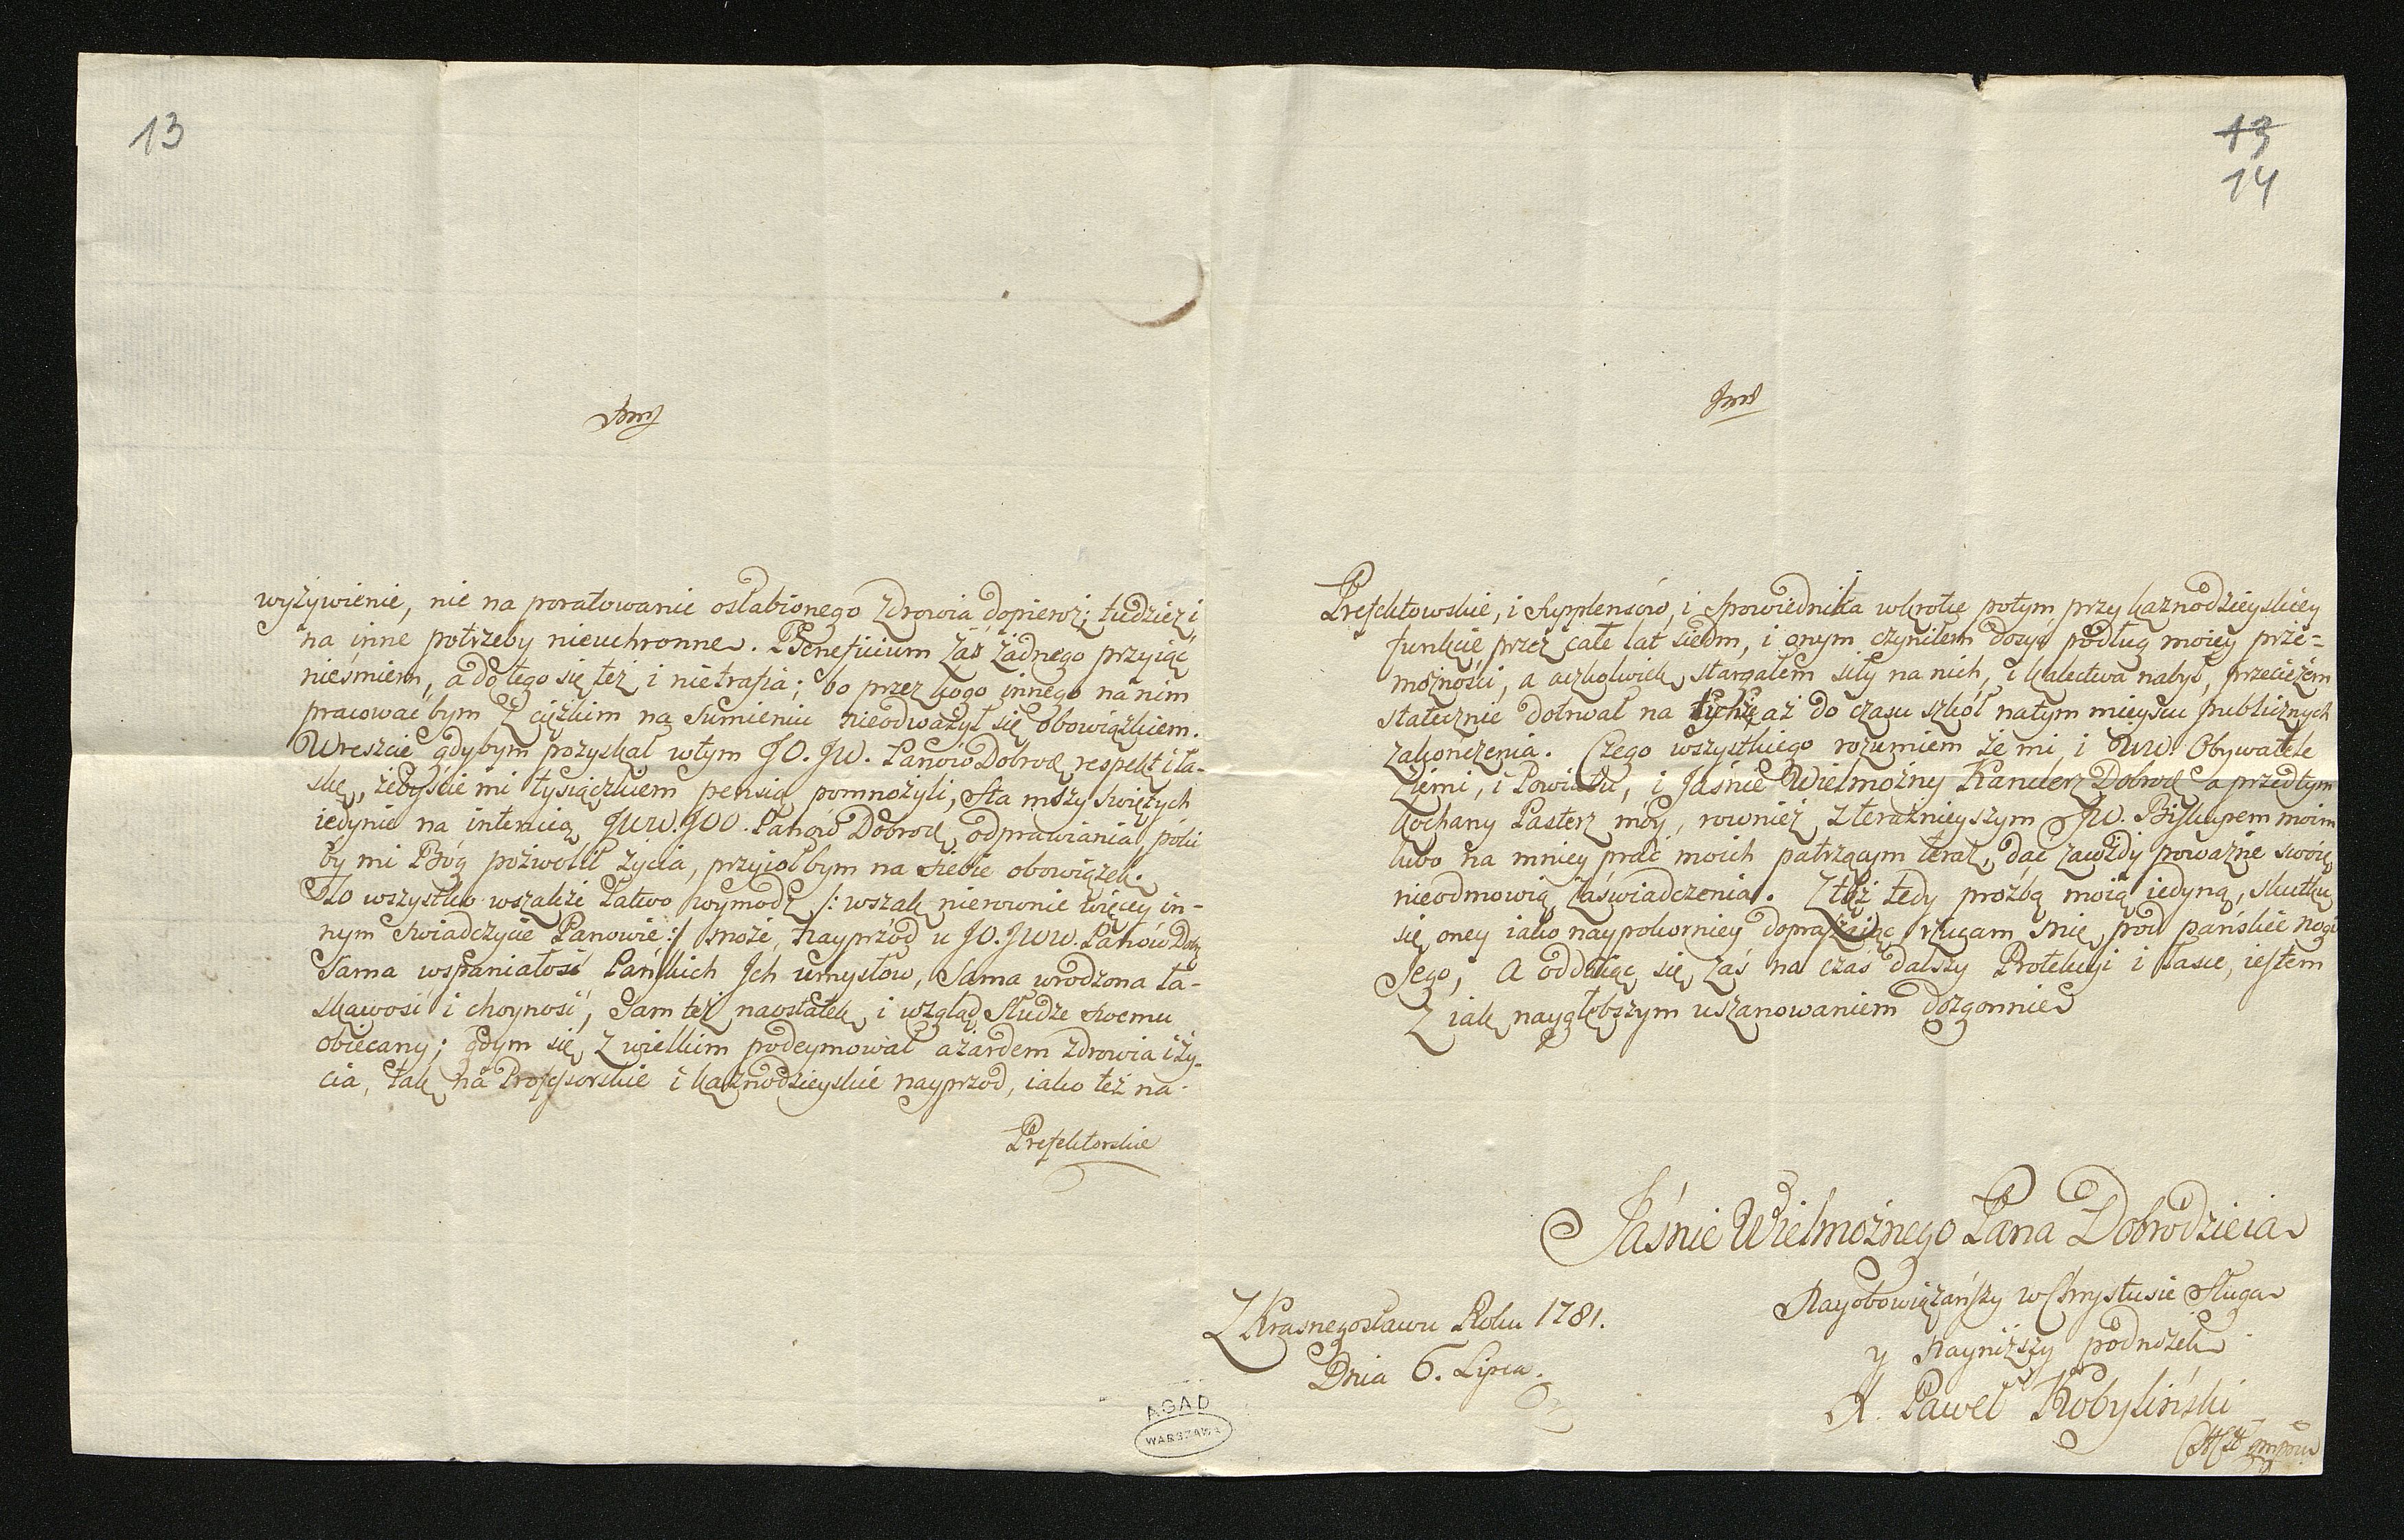 13
wyżywienie, nie na poratowanie osłabionego zdrowia dopieroż; tudzież i
na inne potrzeby nieuchronne. Beneficium zaś żadnego przyiąć
nieśmiem, a do tego się też i nietrafia; bo przez kogo innego na nim
pracować bym z cięzkim na Sumieniu nieodważył się obowiązkiem.
Wreszcie gdybym pozyskał wtym JO. JW. Panów Dobrod respekt i ła-
skę, żebyście mi tysiączkiem pensią pomnożyli, Sta mszy świętych
iedynie na intencią JWW. JOO. Panów Dobrod odprawiania, póki
by mi Bóg pozwolił życia, przyiołbym na siebie obowiązek.
To wszystko wszakże łatwo wymodz /: wszak nierownie więcey in-
nym świadczycie Panowie :/ może, nayprzód u JO. JWW. Panów Dobr
Sama wspaniałość Pańskich Ich umysłow, Sama wrodzona ła-
skawość i choyność, Sam też naostatek i wzgląd Słudze swemu
obiecany; gdym się z wielkim podeymował azardem zdrowia i ży-
cia, tak na Professorskie i kaznodzieyskie nayprzod, iako też na
Prefektorskie
13
14
Prefektowskie, i Supplensów, i Spowiednika wkrotce potym przy kaznodzieyskiey
funkcie przez całe lat siedm, i onym czyniłem dosyć podług moiey prze-
możności, a aczkolwiek stargałem siły na nich, i kalectwa nabył, przecieżem
statecznie dotrwał na tychże aż do czasu szkół natym mieyscu publicznych
zakończenia. Czego wszystkiego rozumiem że mi, i WW Obywatele
Ziemi, i Powiatu, i Jaśnie Wielmożny Kanclerz Dobrod a przedtym
kochany Pasterz móy, rownież z teraźnieyszym JW. Biskupem moim
lubo na mniey prac moich patrzącym teraz, dać zawżdy poważne swoie
nieodmowią zaświadczenia. Z tąż tedy prozbą moią iedyną, skutku
się oney iako naypokorniey dopraszaiąc rzucam się pod pańskie nogi
Jego, A oddaiąc się zaś na czas dalszy Protekcyi i łasce, iestem
Z iak naygłębszym uszanowaniem dozgonnie
Jaśnie Wielmożnego Pana Dobrodzieia
Nayobowiązańszy w Chrystusie Sługa
y Nayniższy podnóżek
X. Paweł Kobyliński
Z Krasnegostawu Roku 1781.
Dnia 6. Lipca.
AGAD
WARSZAWA